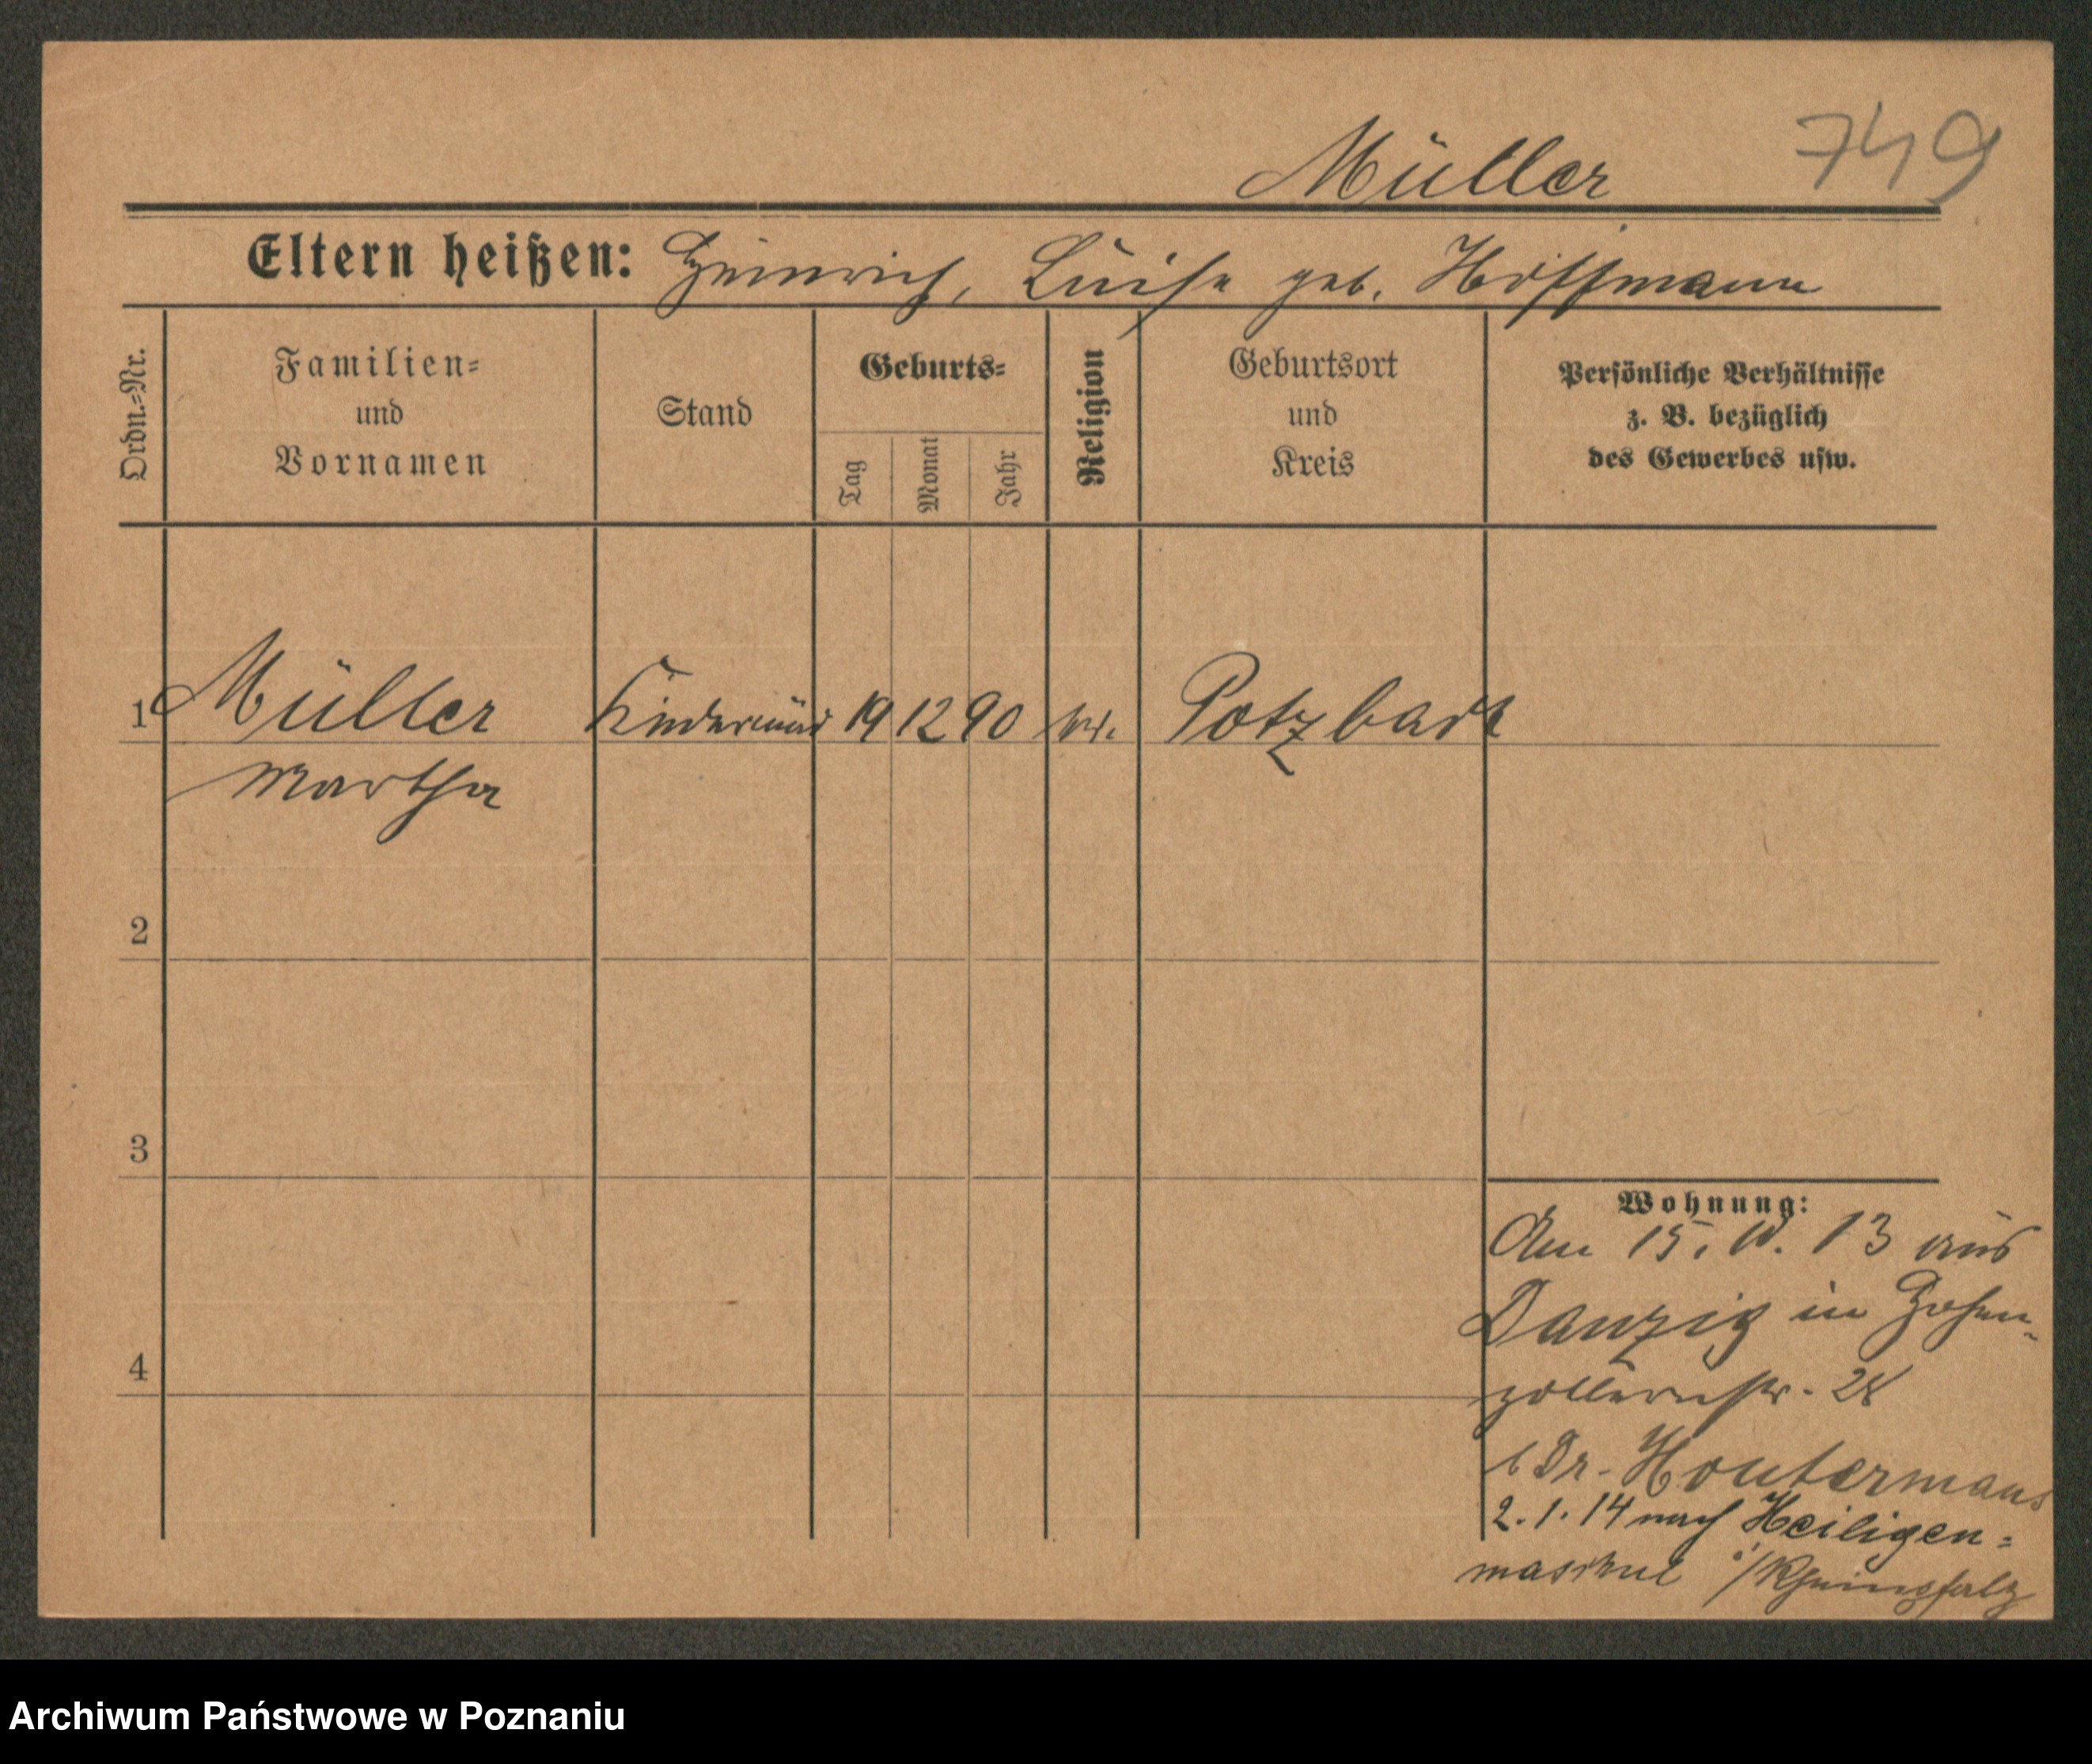 Müller 749
Eltern heißen: Heinrich, Luise geb. Hoffmann
Ordn.=Nr.
Familien=
und
Vornamen
Stand
Geburts=
Tag
Monat
Jahr
Religion
Geburtsort
und
Kreis
Persönliche Verhältnisse
z. B. bezüglich
des Gewerbes usw.
1 Müller 19 12 90 Potzbach
Martha
2
3
4
Wohnung:
Am 15. 10. 13 aus
Danzig in Hohen-
zollernstr. 28
b Dr. Houtermans
2. 1. 14 nach Heiligen=
i/Rheinpfalz
Archiwum Państwowe w Poznaniu